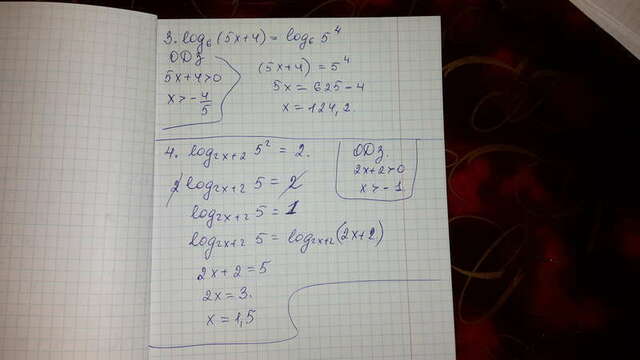 3. log₆(5x+4) = log₆ 5⁴
ОДЗ
5x+4>0
x>-4/5
(5x+4) = 5⁴
5x = 625-4
x = 124,2.
4. log₂ₓ₊₂ 5² = 2.
2 log₂ₓ₊₂ 5 = 2
log₂ₓ₊₂ 5 = 1
log₂ₓ₊₂ 5 = log₂ₓ₊₂(2x+2)
2x+2 = 5
2x = 3.
x = 1,5
ОДЗ.
2x+2>0
x>-1